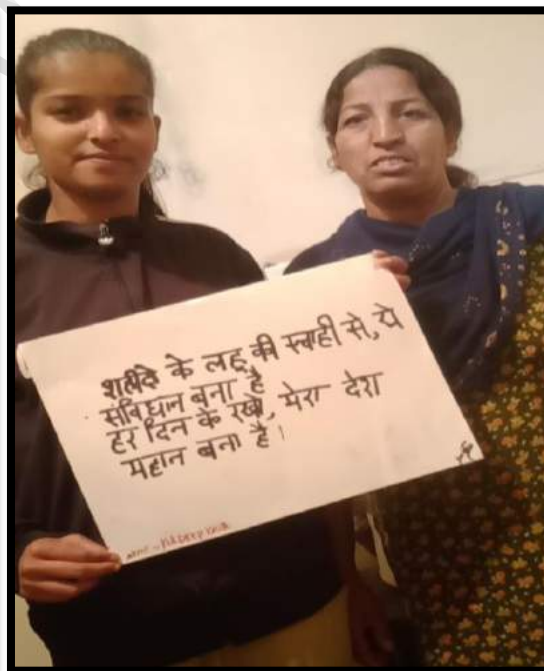 शहीदो के लहू की स्याही से, ये
संविधान बना है
हर दिन के रखो, मेरा देश
महान बना है।